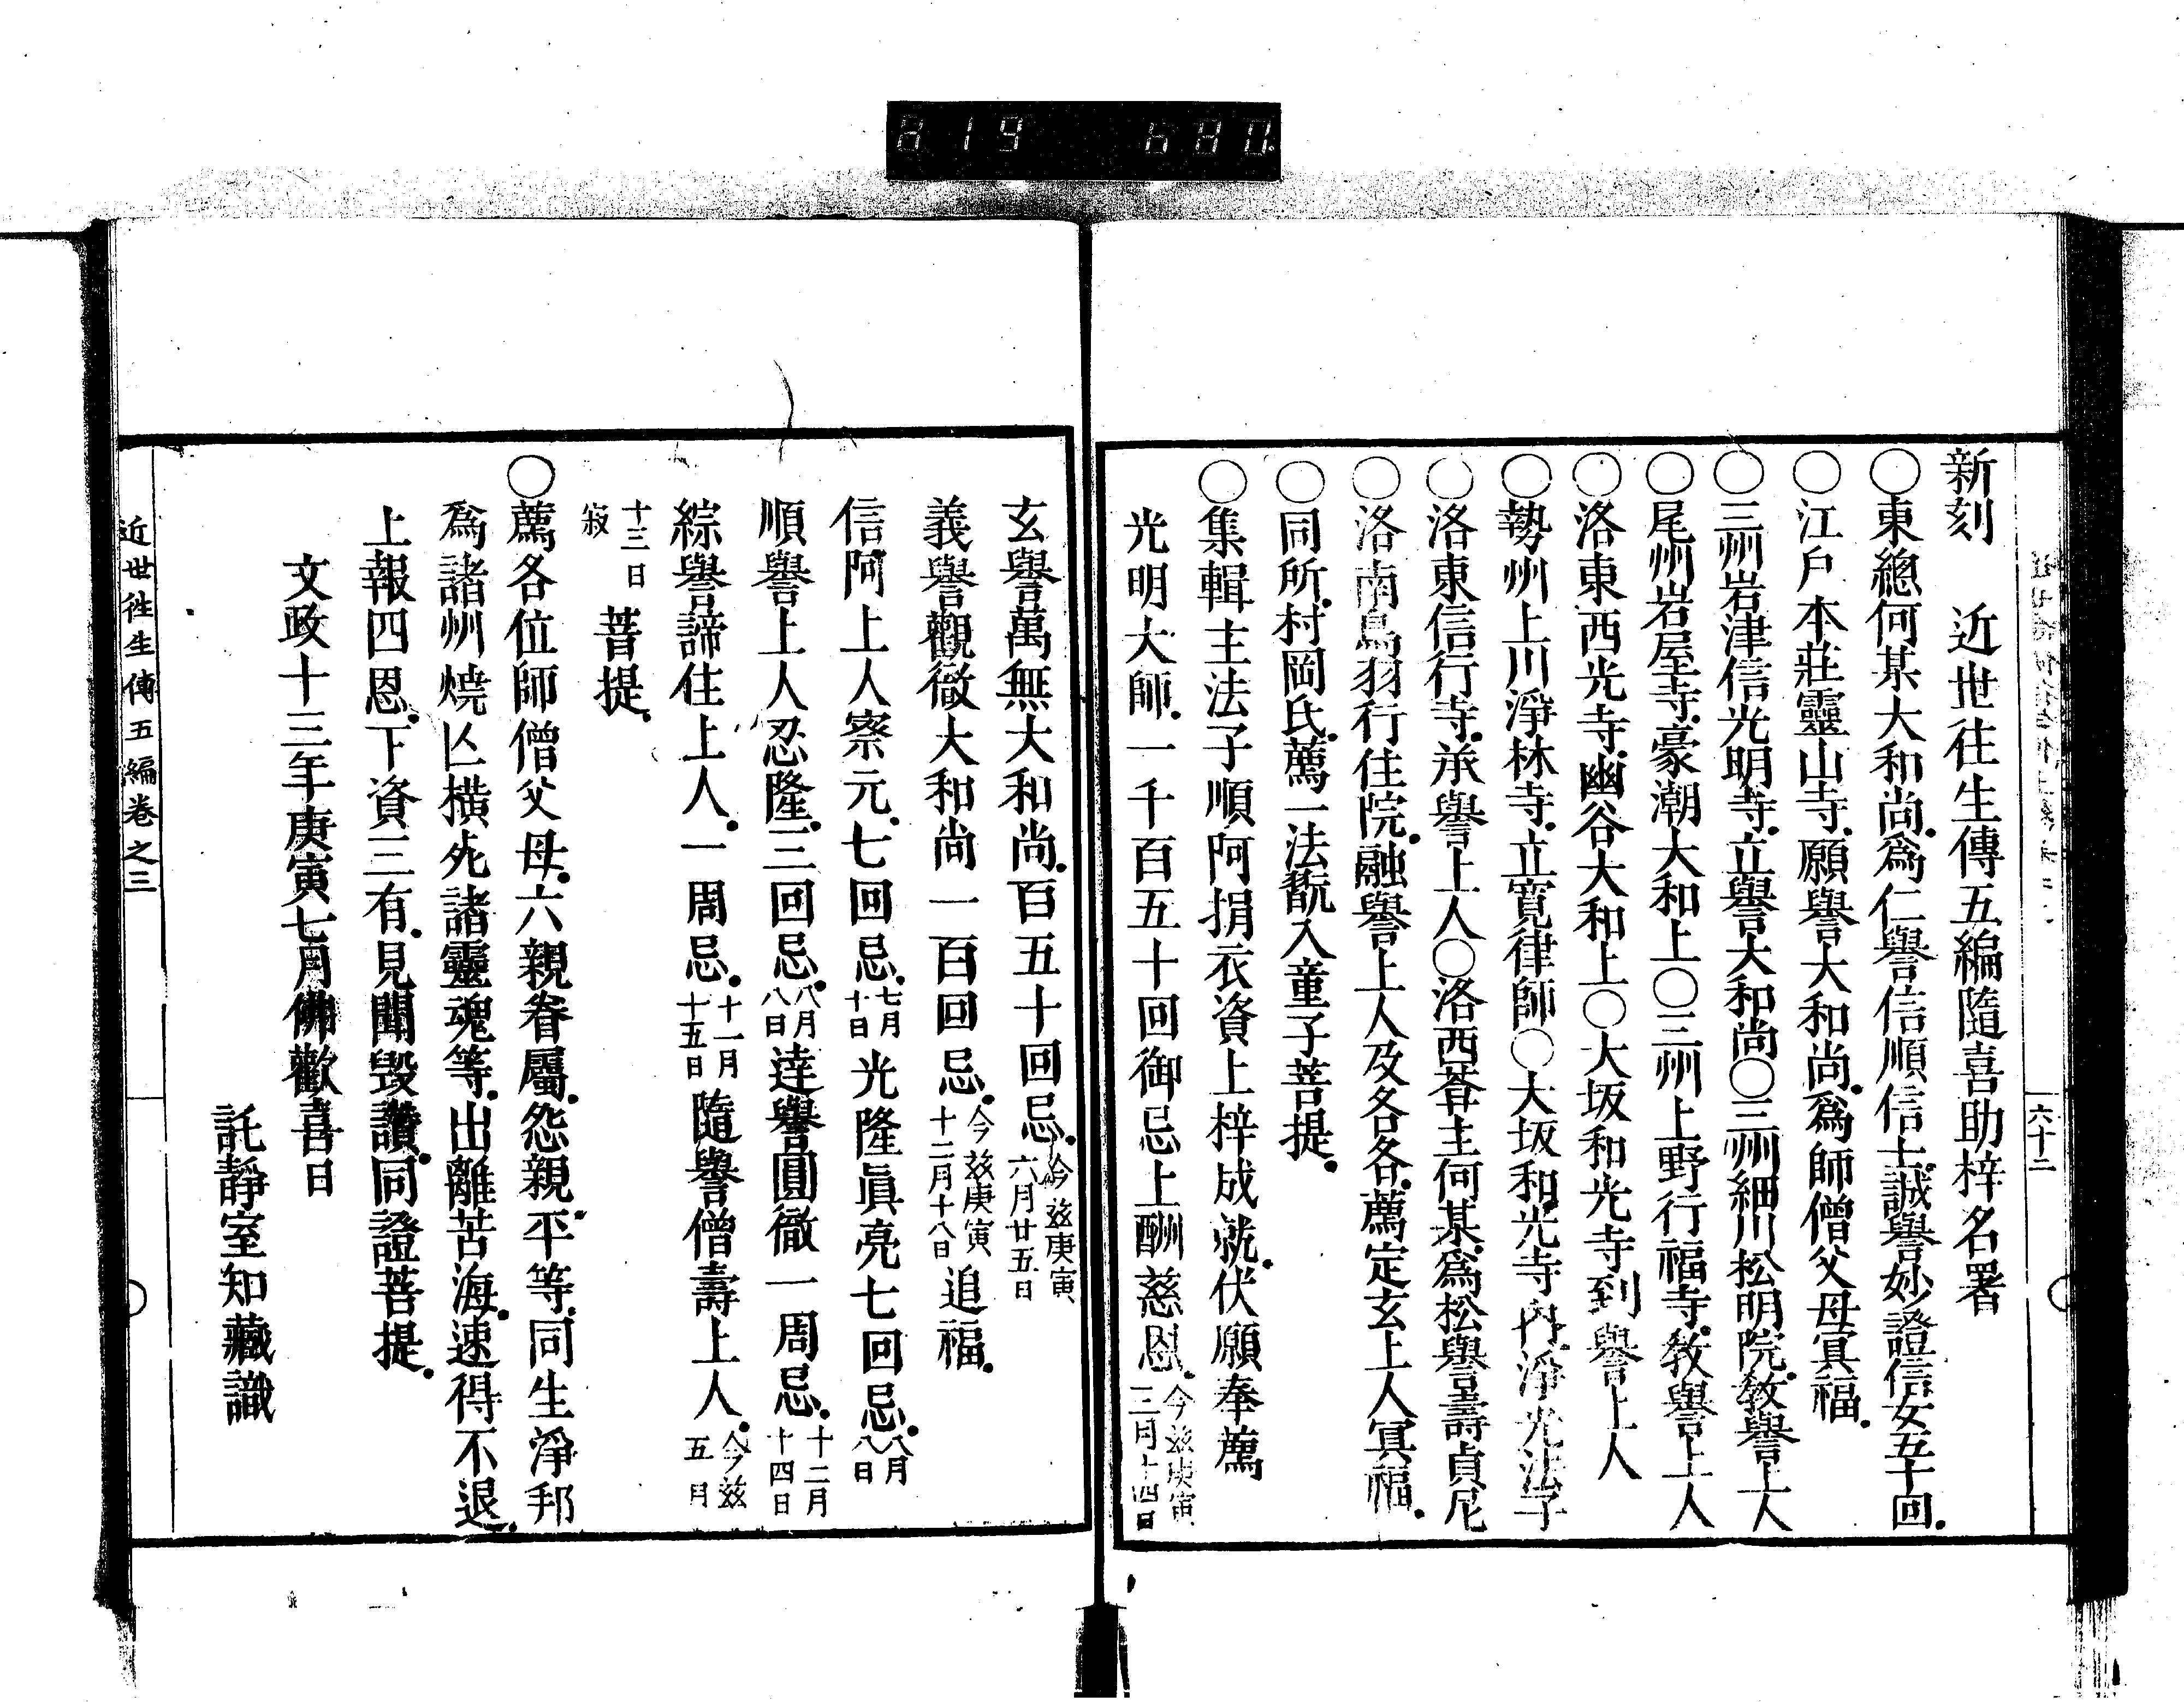 新刻　近世往生傳五編隨喜助梓名署
○東總何某大和尚.爲仁譽信順信士.誠譽妙證信女五十回.
○江戶本莊靈山寺.願譽大和尚.爲師僧父母冥福.
○三州岩津信光明寺.立譽大和尚○三州細川松明院.敎譽上人
○尾州岩屋寺.豪潮大和上○三州上野行福寺.敎譽上人
○洛東西光寺.幽谷大和上○大坂和光寺到譽上人
○勢州上川淨林寺.立寬律師○大坂和光寺內.淨光法子
○洛東信行寺.承譽上人○洛西菴主何某.爲松譽壽貞尼
○洛南鳥羽行住院.融譽上人及各各.薦定玄上人冥福.
○同所.村岡氏.薦一法翫入童子菩提.
○集輯主法子順阿捐衣資上梓成就.伏願奉薦
光明大師.一千百五十回御忌上酬慈恩.今茲庚寅三月十四日
玄譽萬無大和尚.百五十回忌.今茲庚寅六月廿五日
義譽觀徹大和尚一百回忌.今茲庚寅十二月十八日追福.
信阿上人察元.七回忌.七月十日光隆眞亮七回忌.八月八日
順譽上人忍隆.三回忌.八月八日達譽圓徹一周忌.十二月十四日
綜譽諦住上人.一周忌.十一月十五日隨譽僧壽上人.今茲五月
十三日寂菩提.
○薦各位師僧父母.六親眷屬.怨親平等.同生淨邦
爲諸州燒亾橫死諸靈魂等.出離苦海.速得不退.
上報四恩.下資三有.見聞毀讚.同證菩提.
文政十三年庚寅七月佛歡喜日
託靜室知藏識
近世徃生傳五編卷之三
六十二